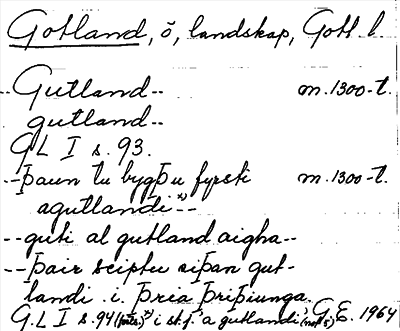 Gotland, ö, landskap, Gotl. l.
--Gutland-- m. 1300-t.
gutland--
GL I s. 93.
--þaun tu bygþu fyrsti m. 1300-t.
agutlandi--
--guti al gutland aigha--
--þair sciptu siþan gut-
landi . i . þria þriþiunga.
GL I s. 94 i st. f. a gutlandi G.E. 1964